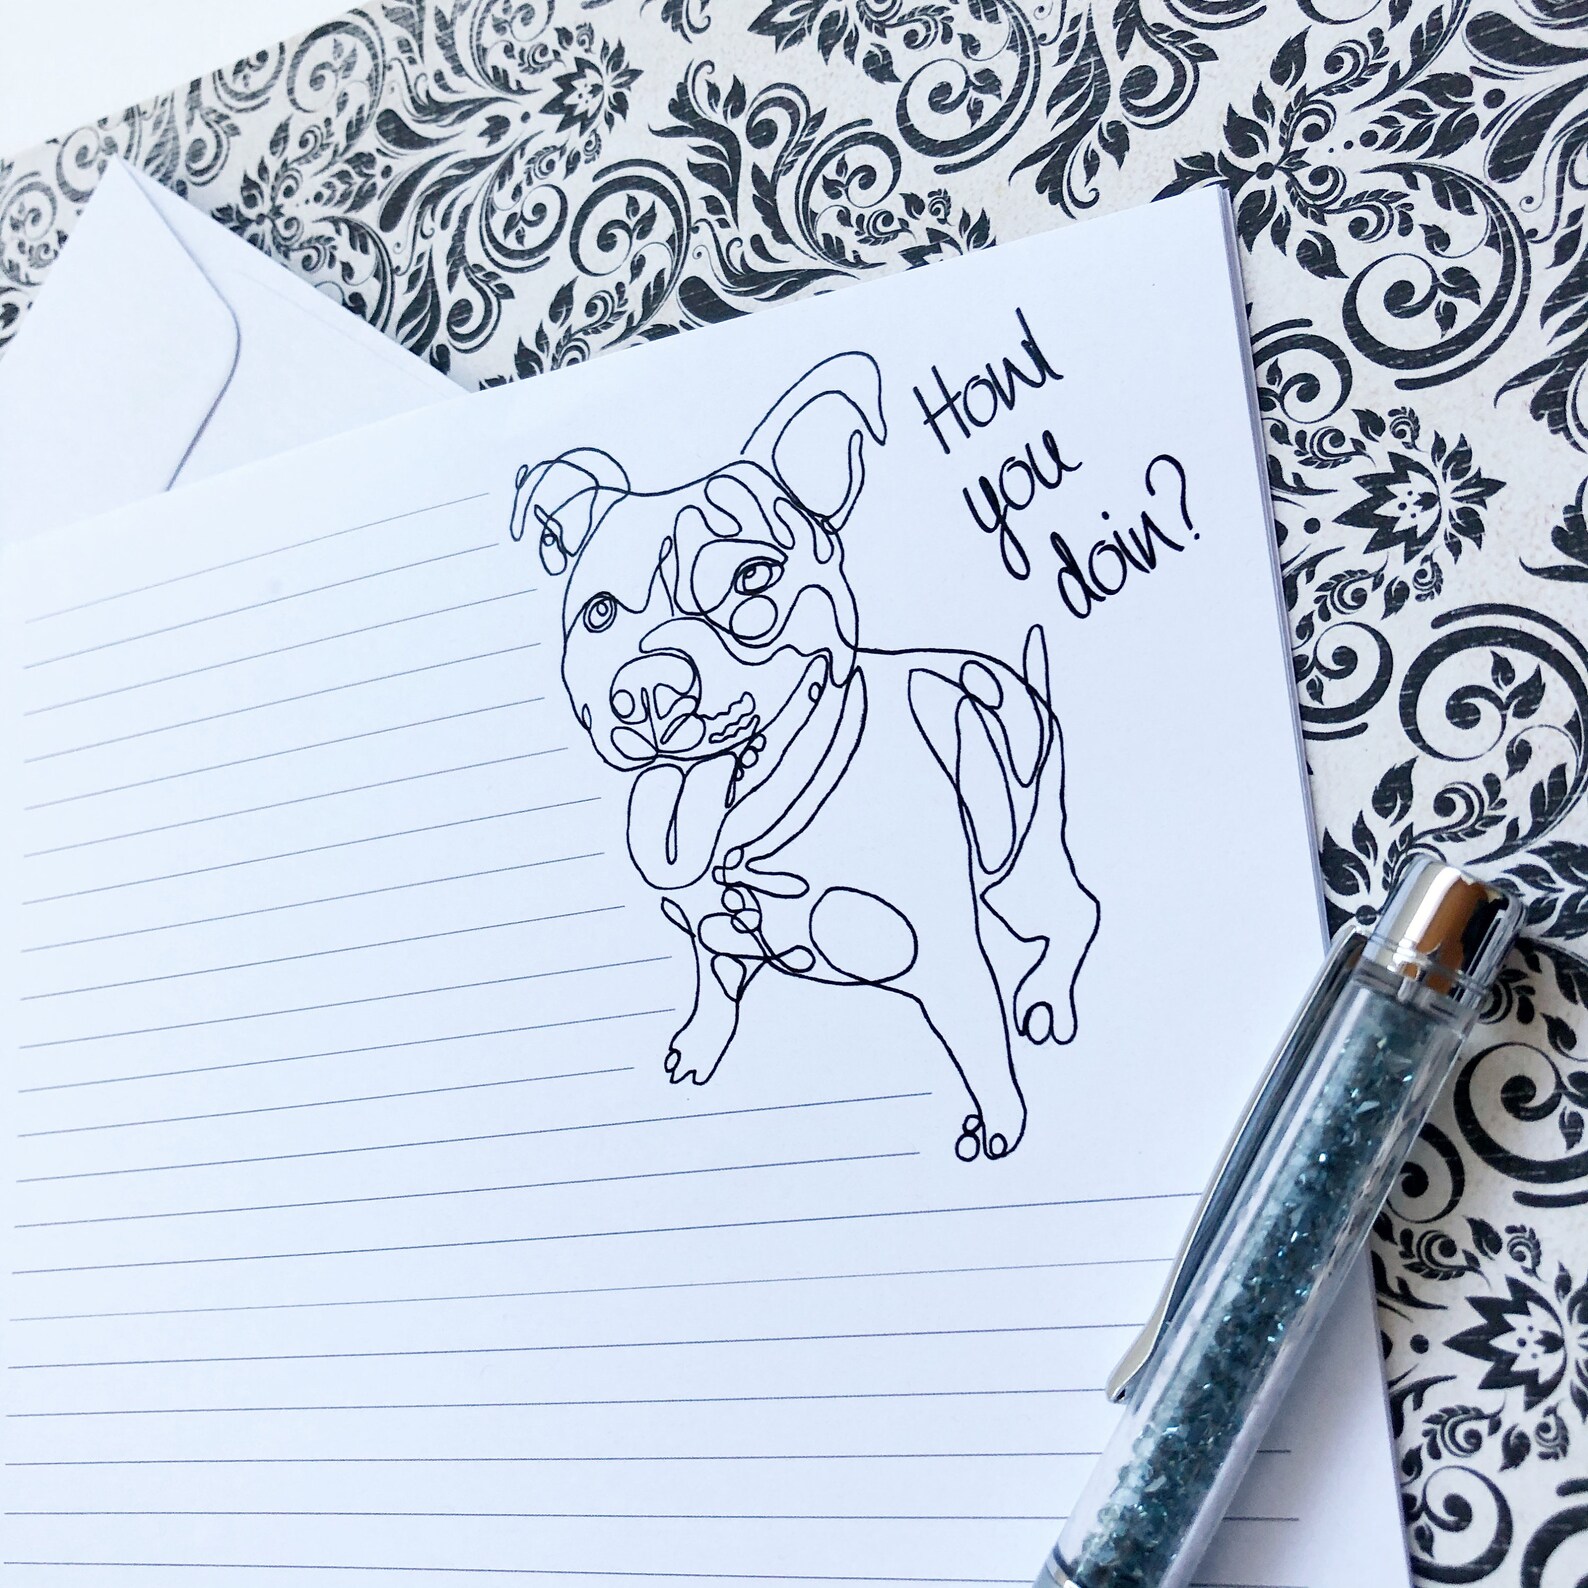 Howl
you
doin?